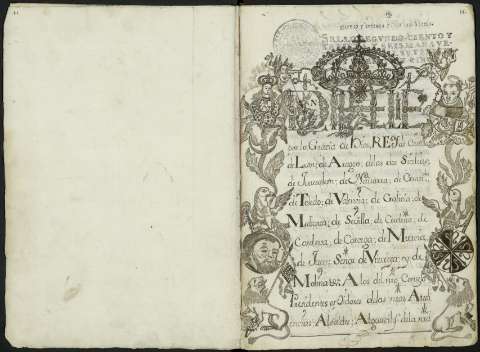 SELLO SEGVNDO, CIENTO Y
SEIS MARAVE-
por la Gracia de Dios, REY de
de Leon; de Aragon; delas dos Sicilias;
de Jerusalen; de Navarra; de
de Toledo; de Valencia; de Galicia; de
de Sevilla; de Cerdeña; de
Cordova; de Corcega; de Murcia
de Jaen; Señor de Vizcaya, y de
Molina &a; A los del mi Consejo
Presidentes y Oidores delas mias Audi
encias; Alcaldes; Alguaciles dela mia